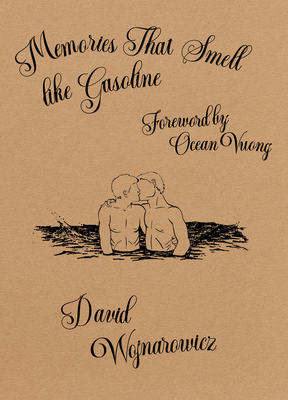 Memories That Smell
like Gasoline
Foreword by
Ocean Vuong
David
Wojnarowicz